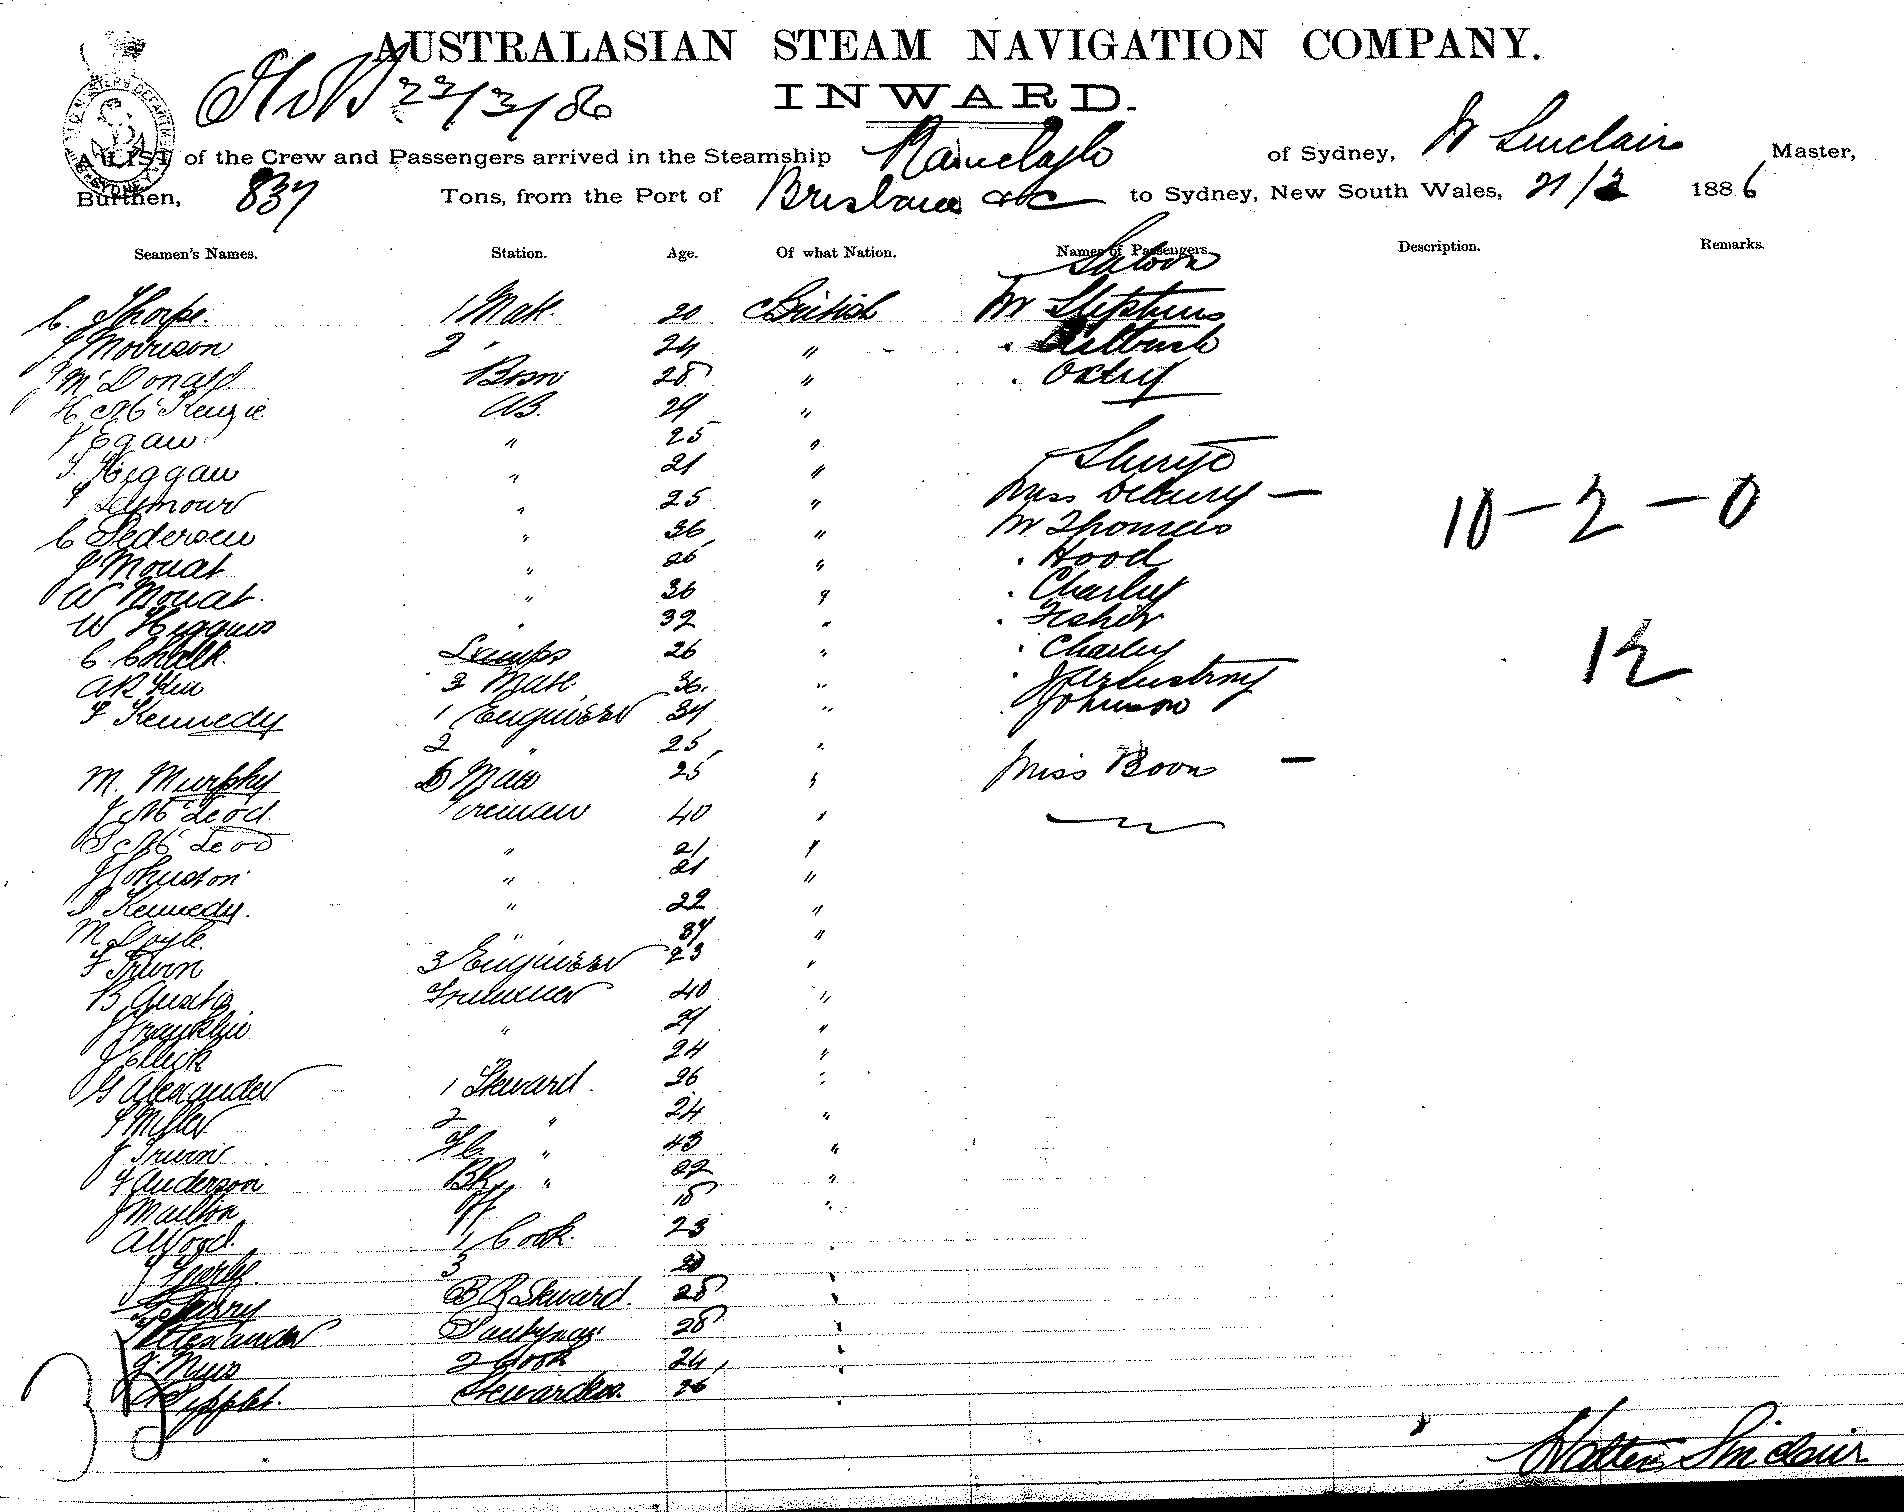 AUSTRALASIAN STEAM NAVIGATION COMPANY.
22/3/86 INWARD.
A LIST of the Crew and Passengers arrived in the Steamship Ranelagh of Sydney, W Sinclair Master,
Burthen, 837 Tons, from the Port of Brisbane &c to Sydney, New South Wales, 21/3 1886
Seamen's Names. Station. Age. Of what Nation. Names of Passengers. Description. Remarks.
Saloon
C. Thorpe. 1 Mate. 20 British Mr Stephens
J Morrison 2 " 24 "
J McDonald Bosn 28 " " Oxley
H McKenzie AB. 29 "
J Egan " 25 "
T. Heggan " 21 " Steerge
Seymour " 25 " Miss Delany —
C Pedersen " 36 " Mr Thomas 10 — 2 — 0
J Mouat " 26 " " Hood
W Mouat. " 36 " " Charley
W Higgins " 32 " " Fisher
C. Chalk. Lamps 26 " " Charley 12
A R Kew 3 Mate. 36. " " J Armstrong
F Kennedy 1 Engineer 34 " " Johnson
2 " 25 "
M. Murphy D Man 25 " Miss Boon —
J McLeod. Fireman 40 "
S McLeod " 21 "
J Johnson " 21 "
P Kennedy. " 22 "
M Doyle. " 34 "
F Irwin 3 Engineer 23 "
B Austa Trimmer 40 "
J Franklin " 29 "
J Ellick 24 "
G Alexander 1 Steward. 26 "
P Miller 2 " 24 "
J Irwin F C. " 43 "
F Anderson BR " 22 "
J Maulton 18 "
A Wood. 1 Cook. 23
3 20 "
Perry B R Steward. 28 "
Alexander Pantryman 28 "
J. Muir 2 Cook 24 "
Typplet. Stewardess. 26 "
35
Walter Sinclair